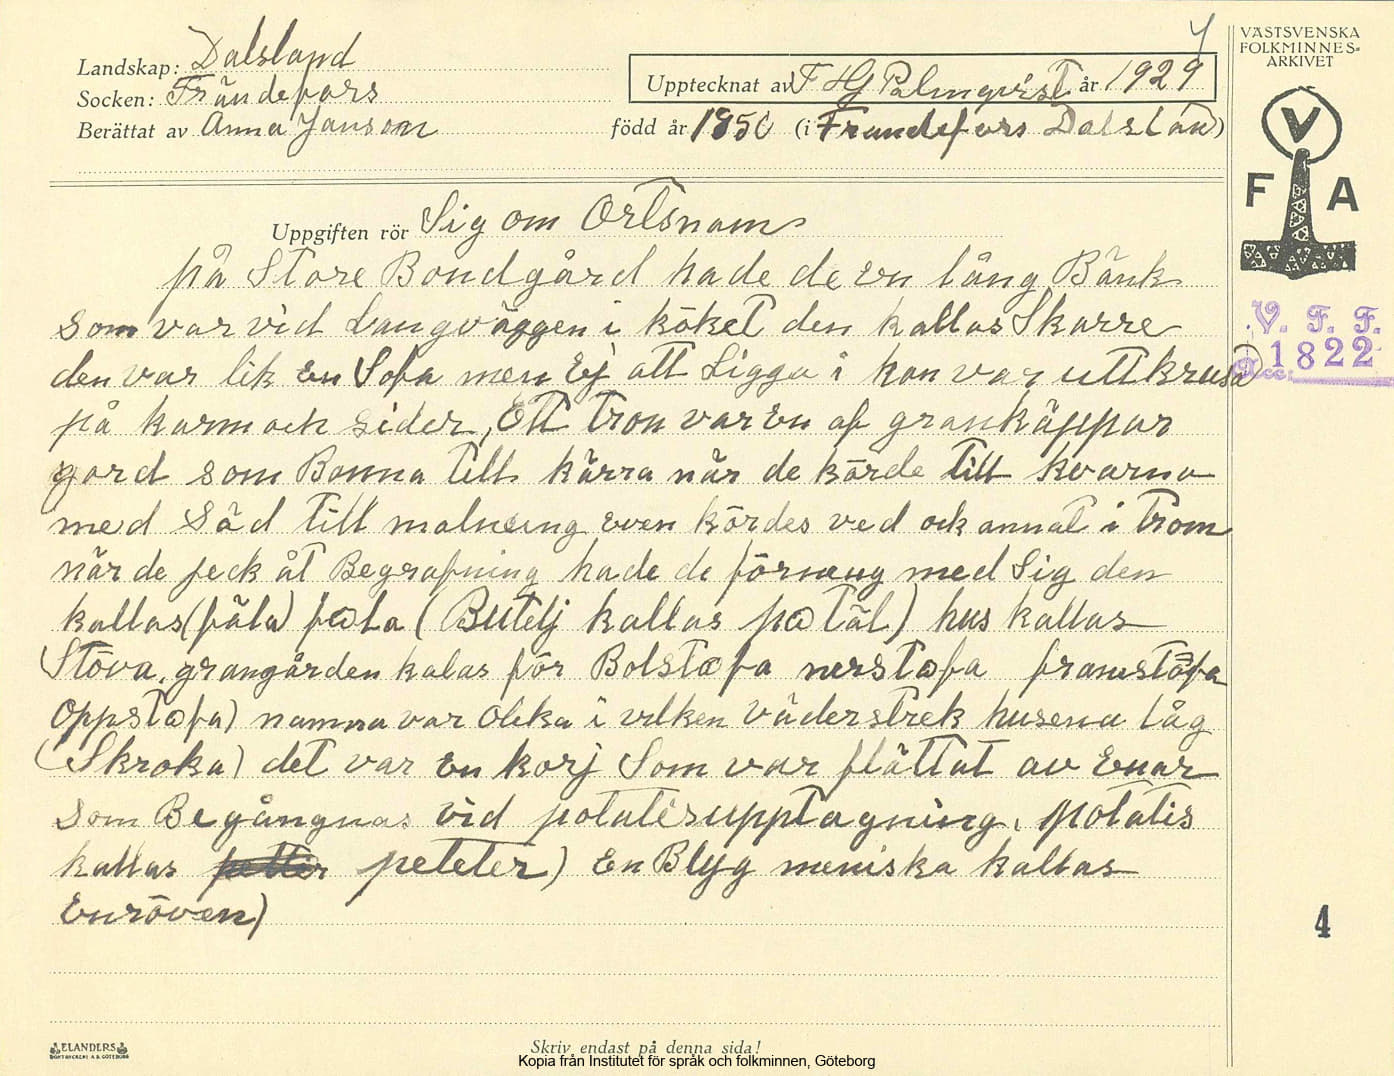 4
VÄSTSVENSKA
FOLKMINNES-
ARKIVET
Landskap: Dalsland
Socken: Frändefors
Upptecknat av F Hj Palmqvist år 1929
Berättat av Anna Janson född år 1850 (i Frändefors Dalslan)
V
F A
Uppgiften rör Sig om Ortsnam
på Store Bondgård hade de en lång Bänk
som var vid Langväggen i köket den kallas Skarre
den var lik En Sofa men Ej att Ligga i hon var uttkrusa
på karm och sider, Ett tron var En af grankäppar
gord som Bonna till kärra när de körde till kvarna
med Säd till malneing even kördes ved ock annat i trom
när de feck åt Begrafning hade de förneng med Sig den
kallas (fäla) fala (Butelj kallas patäl) hus kallas
Stöva, grangården kalas för Bolstafa nerstafa framstöfa
Oppstafa) namna var Oleka i vilken väderstrek husena låg
(Skroka) det var En korj Som var flättat av Enar
som Begångnas vid potatisupptagning, potatis
kallas peteter) En Blyg meniska kallas
Enröven)
V. F. F.
Acc. 1822
4
ELANDERS
BOKTRYCKERI A.B. GÖTEBORG
Skriv endast på denna sida!
Kopia från Institutet för språk och folkminnen, Göteborg